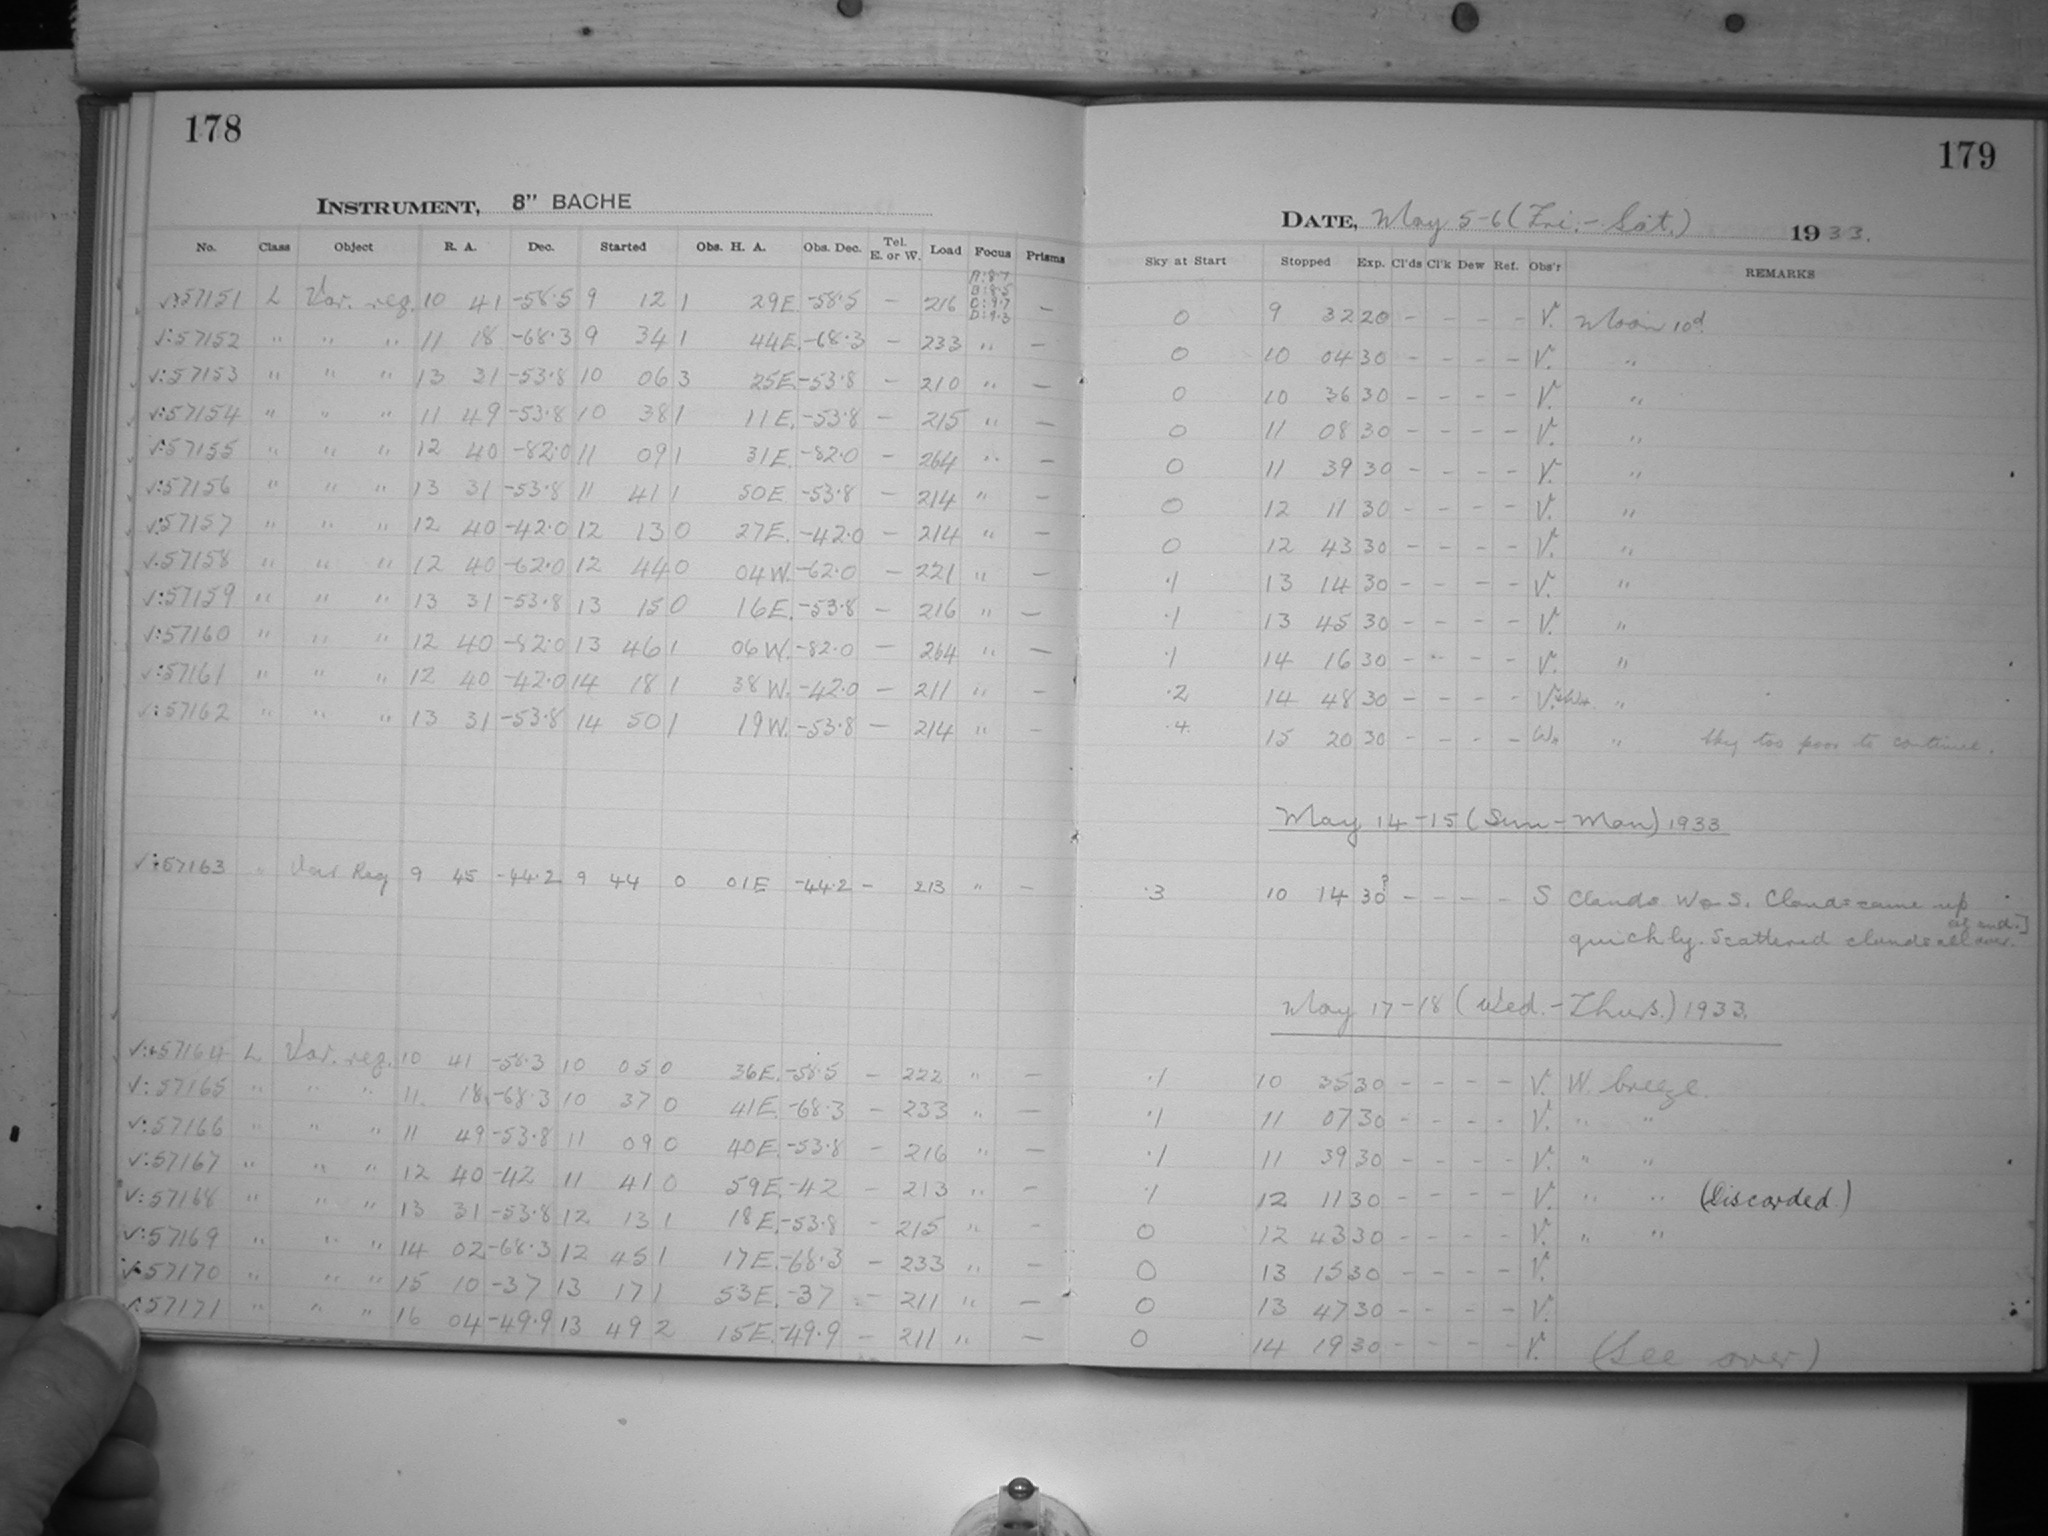 178
INSTRUMENT, 8" BACHE
No. Class Object R. A. Dec. Started Obs. H. A. Obs. Dec. Tel. E. or W. Load Focus Prisms
A:8.7
B:8.5
C:9.7
D:9.3
√:57151 L Var. reg. 10 41 -58.5 9 12 1 29E. -58.5 - 216 -
√:57152 " " " 11 18 -68.3 9 34 1 44E. -68.3 - 233 " -
√:57153 " " " 13 31 -53.8 10 06 3 25E. -53.8 - 210 " -
√:57154 " " " 11 49 -53.8 10 38 1 11E. -53.8 - 215 " -
√:57155 " " " 12 40 -82.0 11 09 1 31E. -82.0 - 264 " -
√:57156 " " " 13 31 -53.8 11 41 1 50E -53.8 - 214 " -
√:57157 " " " 12 40 -42.0 12 13 0 27E. -42.0 - 214 " -
√:57158 " " " 12 40 -62.0 12 44 0 04W. -62.0 - 221 " -
√:57159 " " " 13 31 -53.8 13 15 0 16E. -53.8 - 216 " -
√:57160 " " " 12 40 -82.0 13 46 1 06W. -82.0 - 264 " -
√:57161 " " " 12 40 -42.0 14 18 1 38W. -42.0 - 211 " -
√:57162 " " " 13 31 -53.8 14 50 1 19W. -53.8 - 214 " -
√:57163 " Var Reg 9 45 -44.2 9 44 0 01E -44.2 - 213 " -
√:57164 L Var. reg. 10 41 -58.3 10 05 0 36E. -58.5 - 222 " -
√:57165 " " " 11. 18 -68.3 10 37 0 41E. -68.3 - 233 " -
√:57166 " " " 11 49 -53.8 11 09 0 40E. -53.8 - 216 " -
√:57167 " " " 12 40 -42 11 41 0 59E. -42 - 213 " -
√:57168 " " " 13 31 -53.8 12 13 1 18E. -53.8 - 215 " -
√:57169 " " " 14 02 -68.3 12 45 1 17E. -68.3 - 233 " -
√:57170 " " " 15 10 -37 13 17 1 53E. -37 - 211 " -
√:57171 " " " 16 04 -49.9 13 49 2 15E. -49.9 - 211 " -
179
DATE, May 5-6 (Fri.-Sat.) 1933.
Sky at Start Stopped Exp. Cl'ds Cl'k Dew Ref. Obs'r REMARKS
0 9 32 20 - - - - V. Moon 10d.
0 10 04 30 - - - - V. "
0 10 36 30 - - - - V. "
0 11 08 30 - - - - V. "
0 11 39 30 - - - - V. "
0 12 11 30 - - - - V. "
0 12 43 30 - - - - V. "
.1 13 14 30 - - - - V. "
.1 13 45 30 - - - - V. "
.1 14 16 30 - - - - V. "
.2 14 48 30 - - - - V. "
.4 15 20 30 - - - - " Sky too poor to continue.
May 14-15 (Sun-Mon) 1933
.3 10 14 30? - - - - S Clouds W & S. Clouds came up
at end.]
quickly. Scattered clouds all over.
May 17-18 (Wed.-Thurs.) 1933.
.1 10 35 30 - - - - V. W. breeze.
.1 11 07 30 - - - - V. " "
.1 11 39 30 - - - - V. " "
.1 12 11 30 - - - - V. " " (Discarded.)
0 12 43 30 - - - - V. " "
0 13 15 30 - - - - V.
0 13 47 30 - - - - V.
0 14 19 30 - - - - V. (See over)